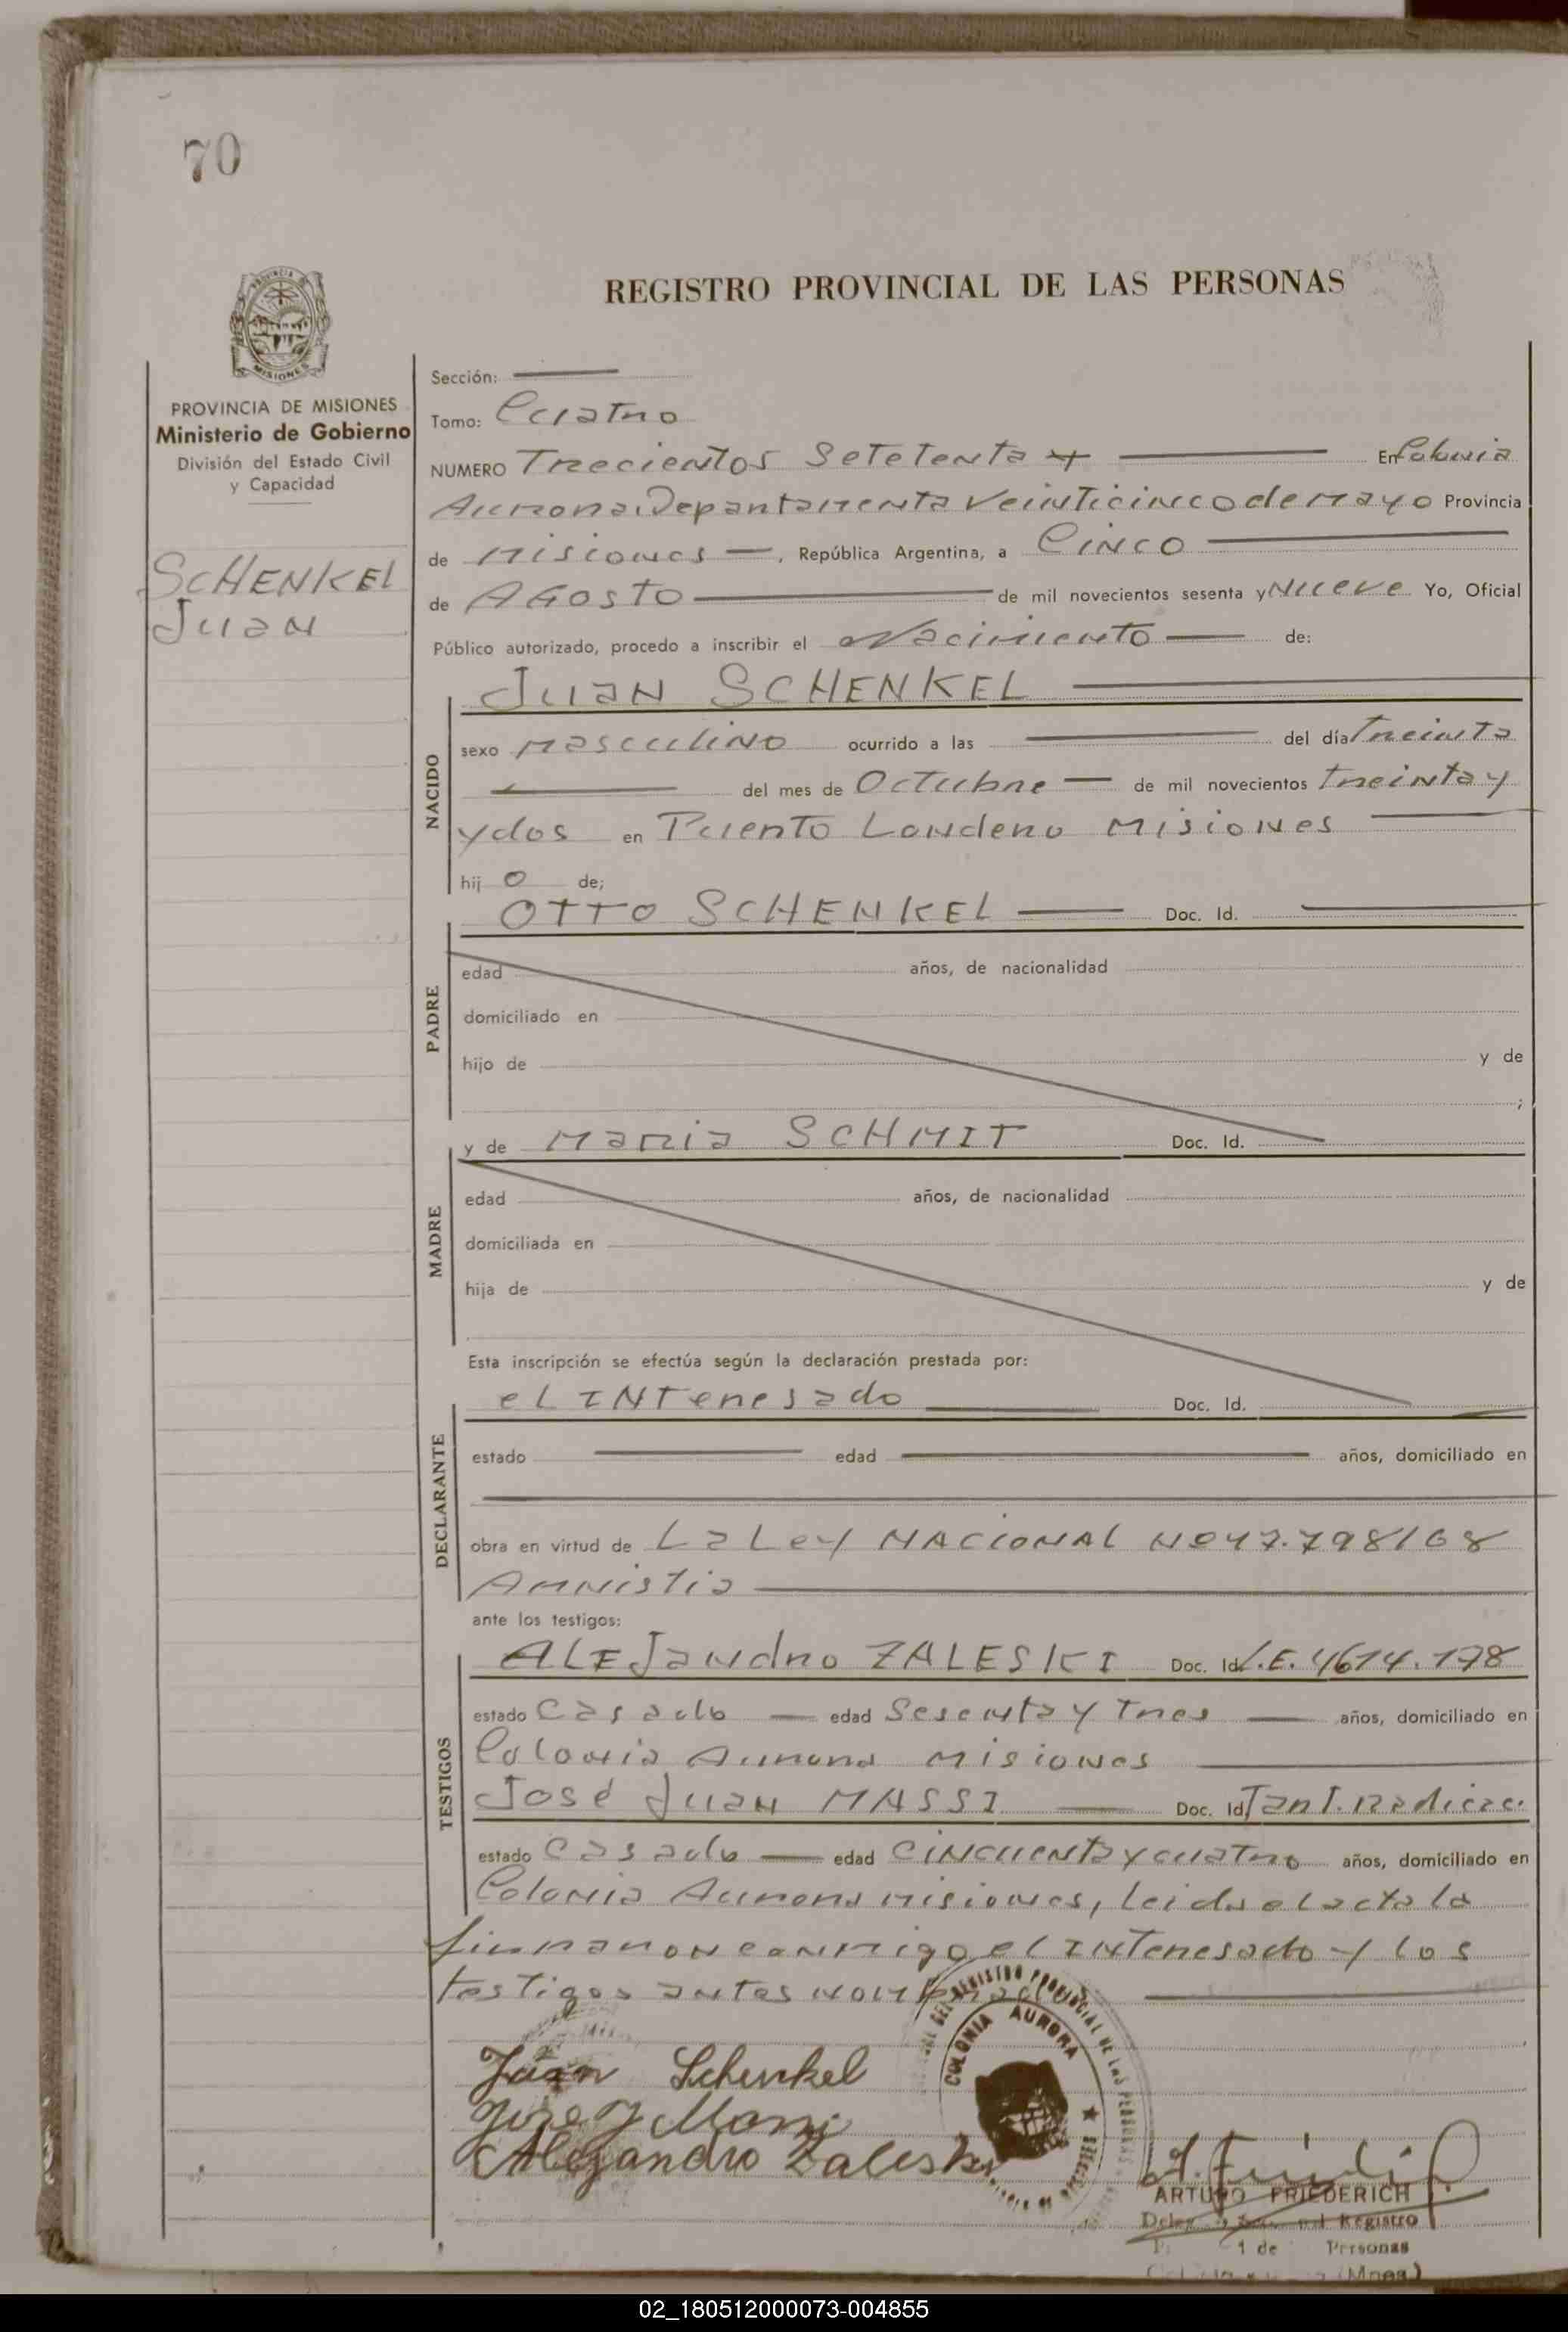 70
REGISTRO PROVINCIAL DE LAS PERSONAS
PROVINCIA
MISIONES
PROVINCIA DE MISIONES
Ministerio de Gobierno
División del Estado Civil
y Capacidad
SCHENKEL
Juan
Sección:
Tomo: Cuatro
NUMERO Trecientos Setetenta En Colonia
Aurora. Departamento Veinticinco de Mayo Provincia
de Misiones —, República Argentina, a Cinco
de Agosto de mil novecientos sesenta y Nueve Yo, Oficial
Público autorizado, procedo a inscribir el Nacimiento — de:
Juan SCHENKEL
NACIDO
sexo masculino ocurrido a las del día treinta
del mes de Octubre — de mil novecientos treinta y
y dos en Puerto Londero Misiones
hij o de;
OTTO SCHENKEL — Doc. Id.
PADRE
edad años, de nacionalidad
domiciliado en
hijo de y de
;
y de Maria SCHMIT Doc. Id.
MADRE
edad años, de nacionalidad
domiciliada en
hija de y de
Esta inscripción se efectúa según la declaración prestada por:
el Interesado Doc. Id.
DECLARANTE
estado edad años, domiciliado en
obra en virtud de La Ley NACIONAL Nº 17.798/68
Amnistia
ante los testigos:
TESTIGOS
ALEJandro ZALESKI Doc. Id. L.E. 4614.178
estado Casado — edad Sesenta y tres — años, domiciliado en
Colonia Aurora Misiones
José Juan MASSI — Doc. Id. Tarj. radicac.
estado Casado — edad Cincuenta y cuatro años, domiciliado en
Colonia Aurora Misiones, leida el acta la
firmaron conmigo el Interesado y los
testigos antes nombrados
COLONIA AURORA
Juan Schenkel
José J Massi
Alejandro Zaleski
ARTURO FRIEDERICH
Registro
de Personas
(Mnes.)
02_180512000073-004855